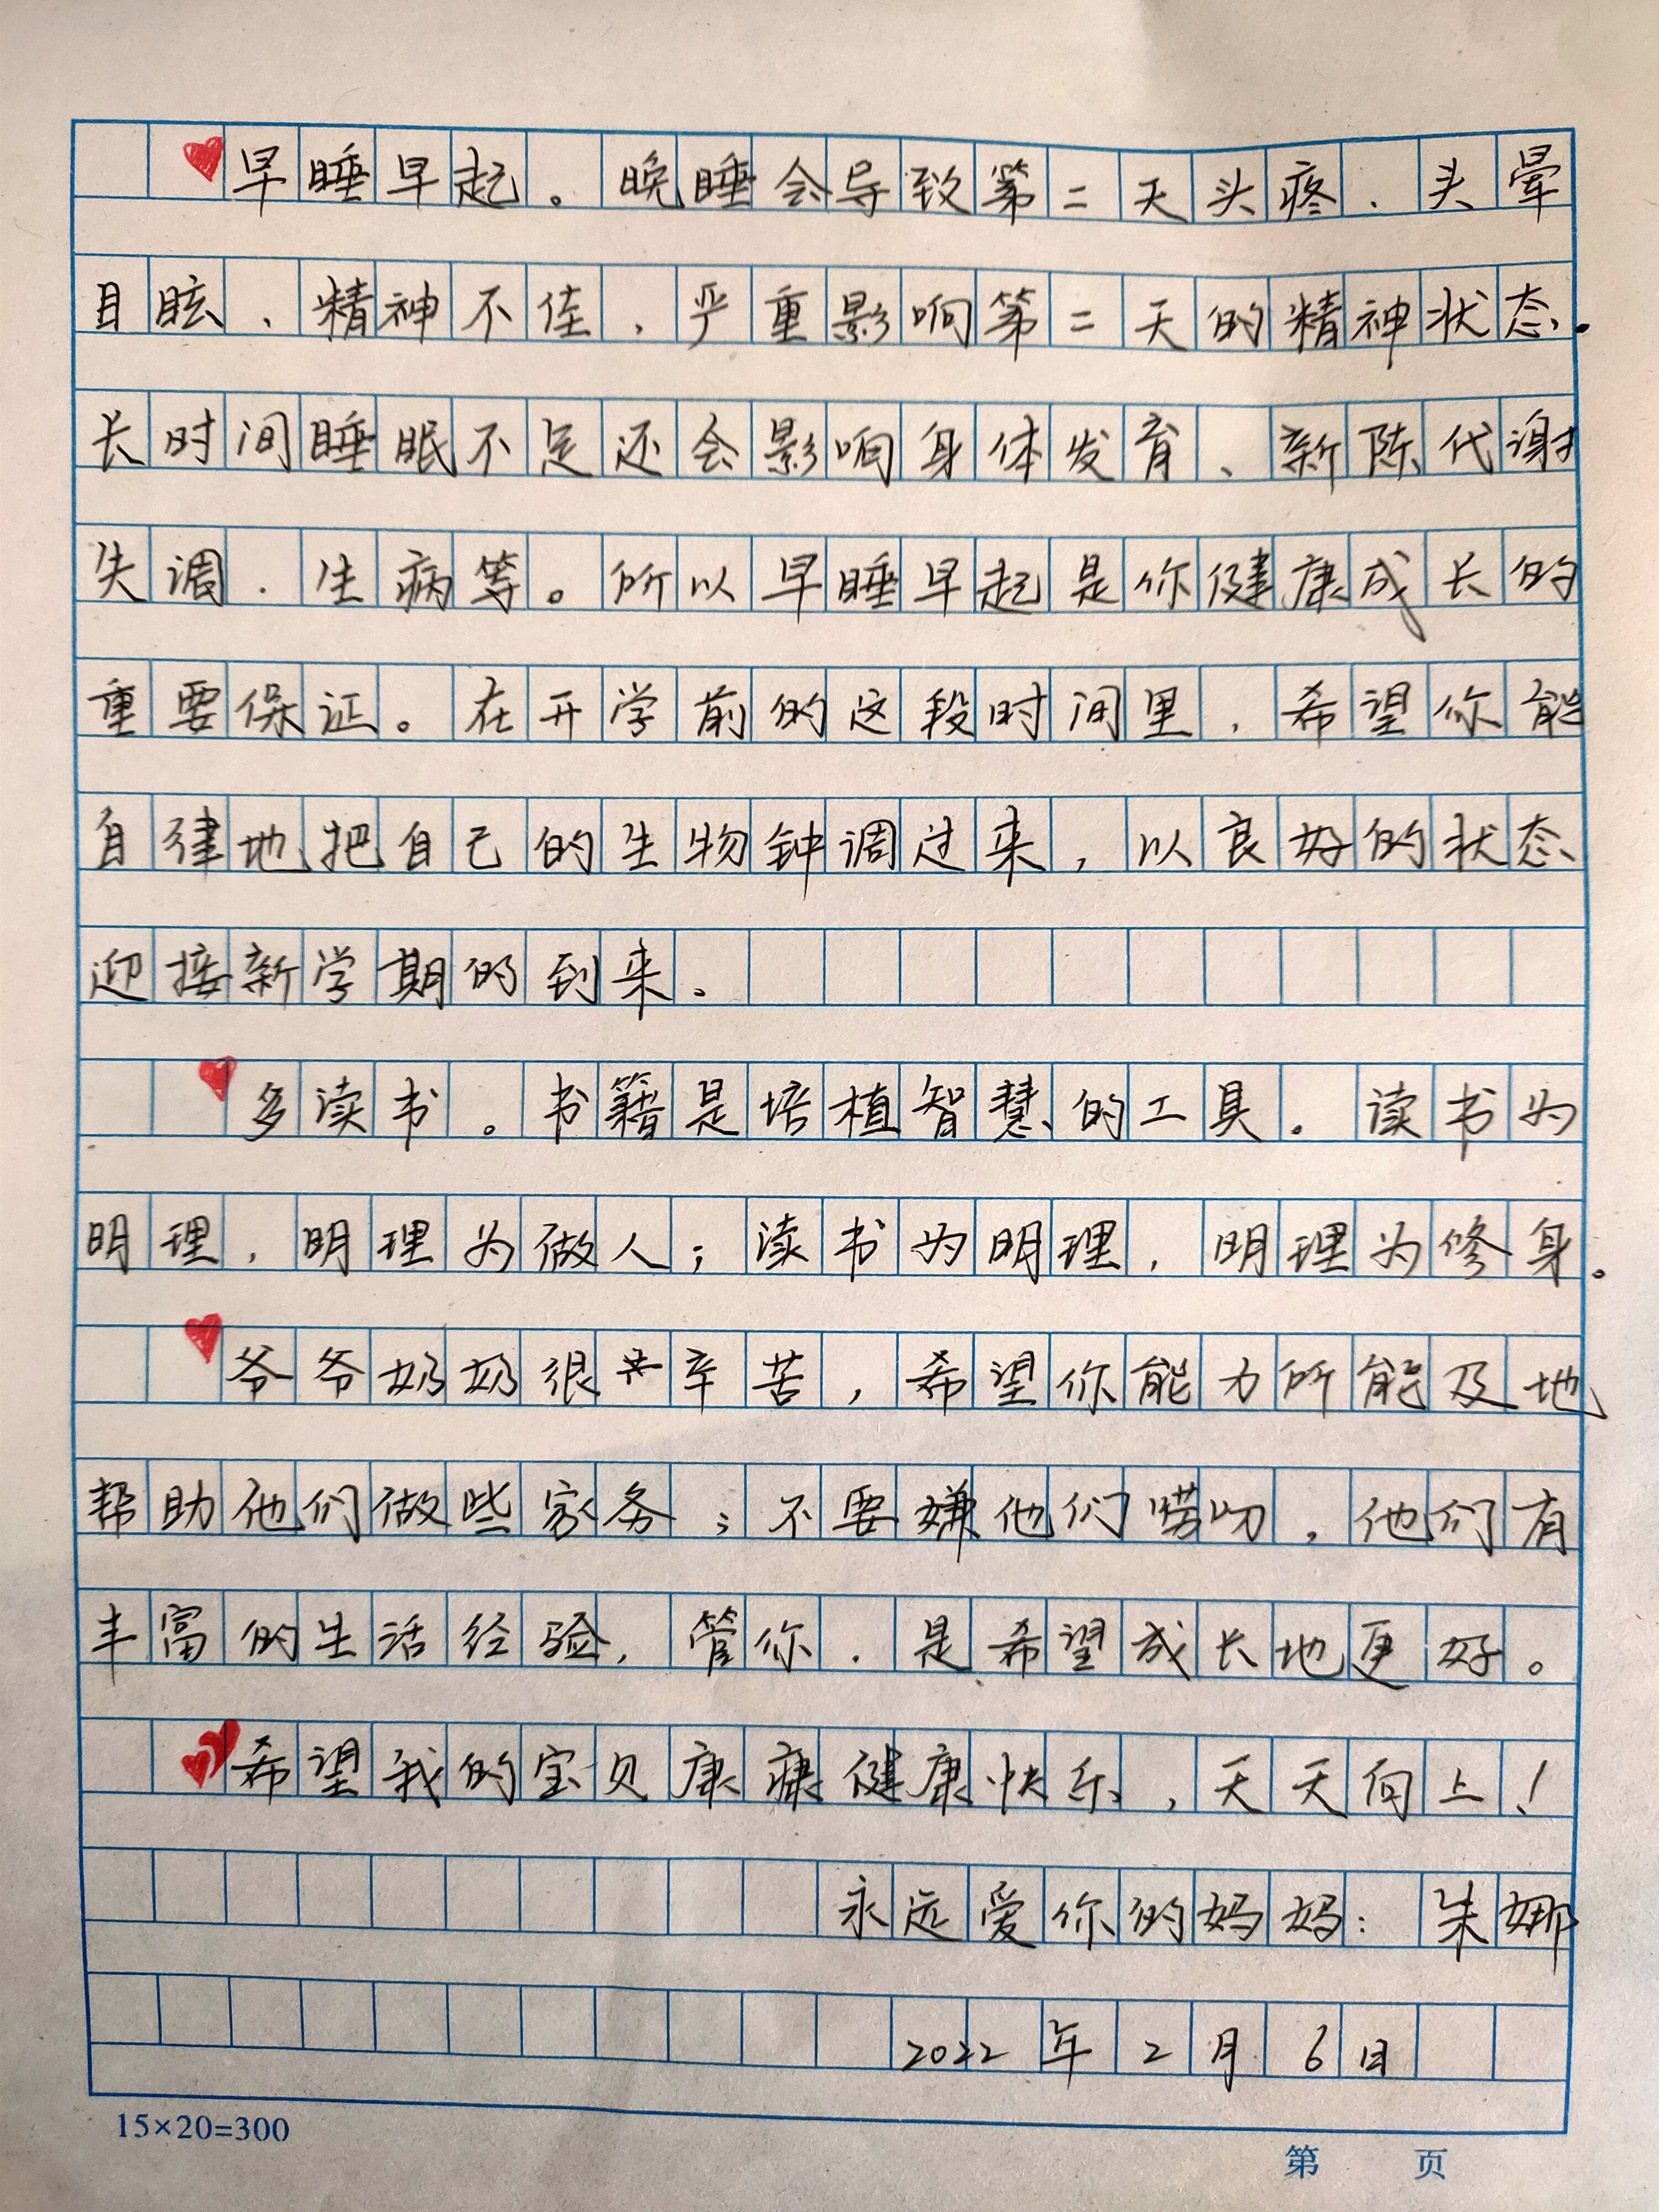 早睡早起。晚睡会导致第二天头疼、头晕
目眩、精神不佳,严重影响第二天的精神状态。
长时间睡眠不足还会影响身体发育、新陈代谢
失调、生病等。所以早睡早起是你健康成长的
重要保证。在开学前的这段时间里,希望你能
自律地把自己的生物钟调过来,以良好的状态
迎接新学期的到来。
多读书。书籍是培植智慧的工具。读书为
明理,明理为做人;读书为明理,明理为修身。
爷爷奶奶很辛苦,希望你能力所能及地
帮助他们做些家务;不要嫌他们唠叨,他们有
丰富的生活经验,管你,是希望成长地更好。
希望我的宝贝康康健康快乐,天天向上!
永远爱你的妈妈:朱娜
2022年2月6日
15×20=300
第 页